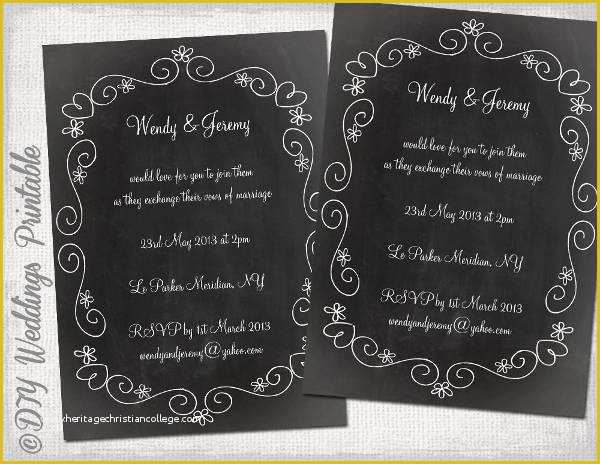 Wendy & Jeremy
would love for you to join them
as they exchange their vows of marriage
23rd May 2013 at 2pm
Le Parker Meridian, NY
RSVP by 1st March 2013
wendyandjeremy@yahoo.com
Wendy & Jeremy
would love for you to join them
as they exchange their vows of marriage
23rd May 2013 at 2pm
Le Parker Meridian, NY
RSVP by 1st March 2013
wendyandjeremy@yahoo.com
©DIY Weddings Printable
heritagechristiancollege.com